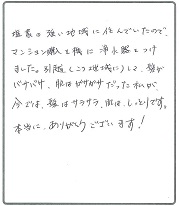 塩素の強い地域に住んでいたので
マンション購入を機に浄水器をつけ
ました。引越(この地域に)して、髪が
パサパサ、肌はガサガサだった私が
今では、髪はサラサラ、肌は、しっとりです。
本当に、ありがとうございます!